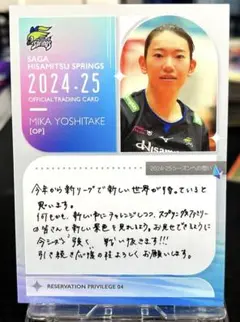 Springs
SAGA
HISAMITSU SPRINGS
2024-25
OFFICIAL TRADING CARD
MIKA YOSHITAKE
[OP]
2024-25シーズンへの想い
今年から新リーグで新しい世界が待っていると
思います。
何事にも、新しい事にチャレンジしつつ、スプリングスファミリー
の皆さんと新しい景色を見れるよう。お見せできるように
今シーズン強く 戦い抜きます!!!
引き続き応援の程よろしくお願いします。
RESERVATION PRIVILEGE 04